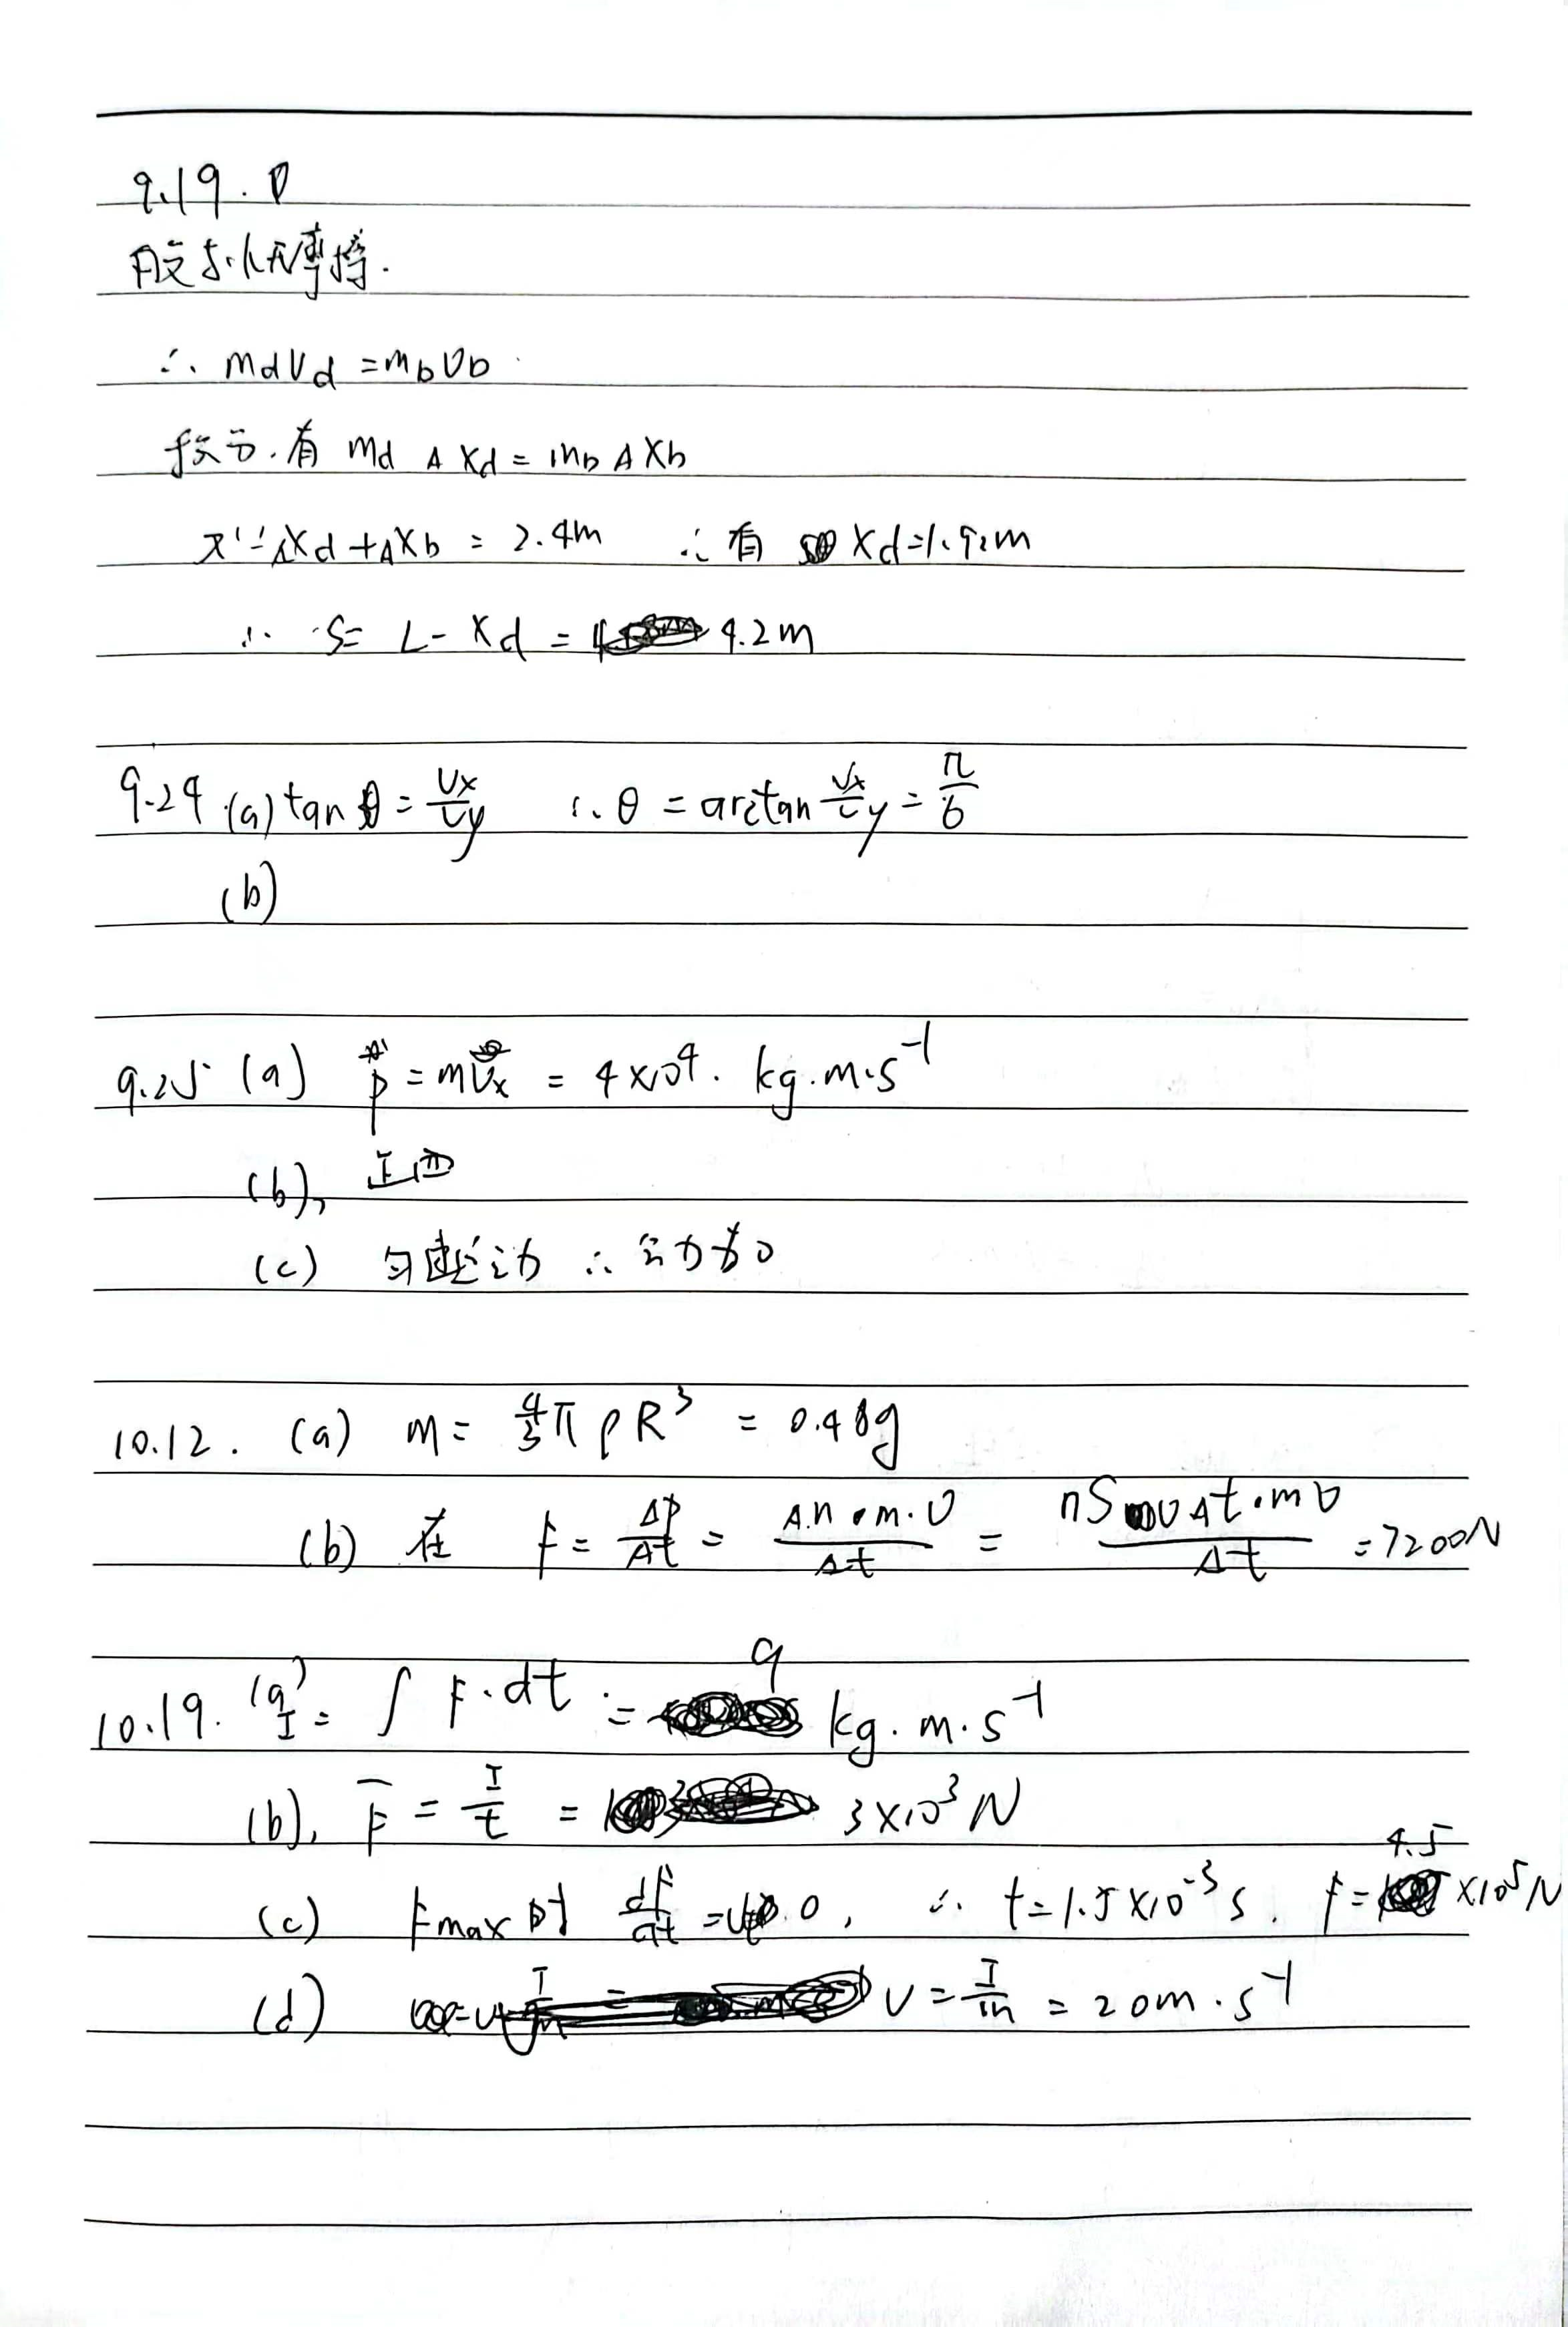 9.19.
假设与水无摩擦.
∴ mdvd = mbvb
有 md Δxd = mb ΔXb
又∵ ΔXd + ΔXb = 2.4m ∴有 Xd=1.92m
∴ S= L - Xd = 4.2m
9.24 (a) tan θ = vx/vy ∴ θ = arctan vx/vy = π/6
(b)
9.25 (a) p = mvx = 4×10⁴. kg.m.s⁻¹
(b), 正西
(c) 匀速运动 ∴ 合力为0
10.12. (a) m = 4/3 π ρR³ = 0.48g
(b) 在 F = Δp/Δt = Δn·m·v/Δt = nSvΔt·mv/Δt = 7200N
10.19. (a) I = ∫ F·dt = 9 kg.m.s⁻¹
(b), F̄ = I/t = 3×10³ N
(c) Fmax时 dF/dt = 0, ∴ t=1.5×10⁻³ s. F= 4.5 ×10⁵N
(d) v = I/m = 20m·s⁻¹